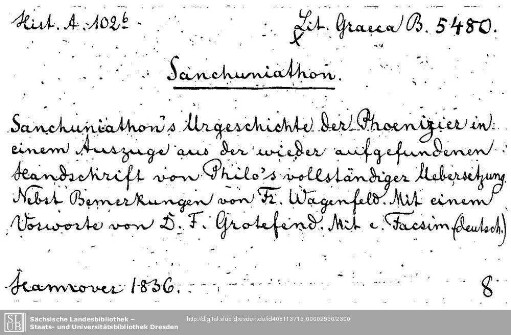 Hist. A. 102b Lit. Graeca B. 5480.
Sanchuniathon.
Sanchuniathon's Urgeschichte der Phoenizier in
einem Auszuge aus der wieder aufgefundenen
Handschrift von Philo's vollständiger Uebersetzung.
Nebst Bemerkungen von Fr. Wagenfeld. Mit einem
Vorworte von D. F. Grotefend. Mit e. Facsim. (deutsch.)
Hannover 1836. 8
SLUB
Sächsische Landesbibliothek –
Staats- und Universitätsbibliothek Dresden